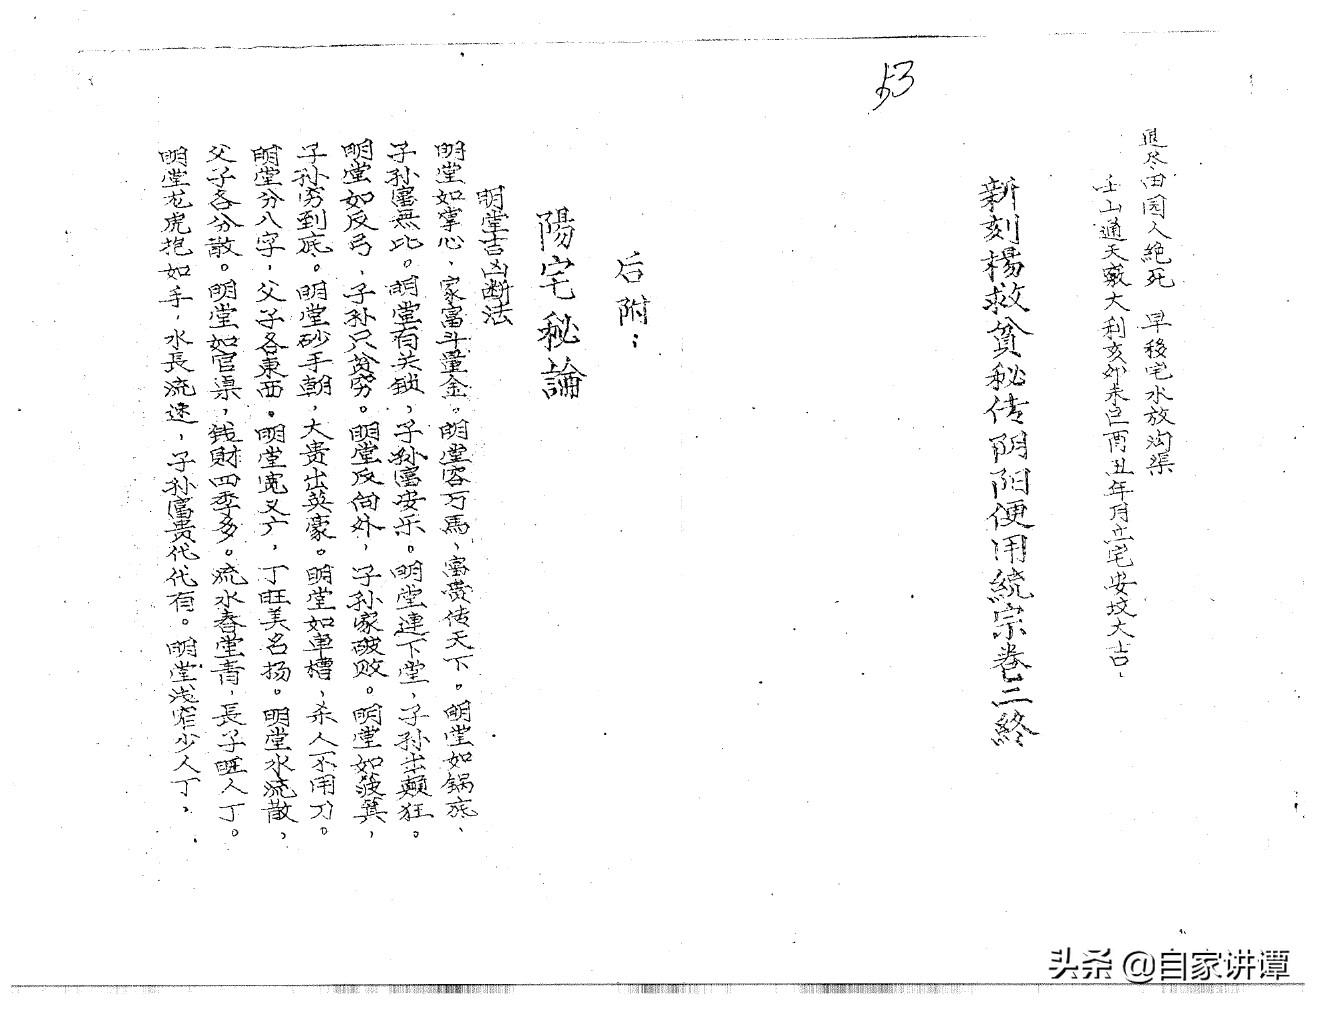 53
退尽田园人绝死 早移宅水放沟渠
壬山通天窍大利亥卯未巳酉丑年月立宅安坟大吉、
新刻楊救貧秘传阴阳便用統宗卷二終
后附：
陽宅秘論
明堂吉凶断法
明堂如掌心，家富斗量金。明堂容万馬、富贵传天下。明堂如锅底、
子孙富無比。明堂有关锁，子孙富安乐。明堂連下堂，子孙出颠狂。
明堂如反弓，子孙只贫穷。明堂反向外，子孙家破败。明堂如簸箕，
子孙穷到底。明堂砂手朝，大贵出英豪。明堂如車槽，杀人不用刀。
明堂分八字，父子各東西。明堂宽又广，丁旺美名扬。明堂水流散，
父子各分散。明堂如官渠，钱財四季多。流水春堂青，長子旺人丁。
明堂龙虎抱如手，水長流速，子孙富贵代代有。明堂浅窄少人丁，
头条 @自家讲谭